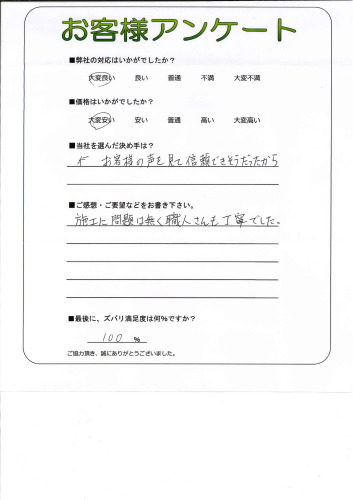 お客様アンケート
■弊社の対応はいかがでしたか?
大変良い 良い 普通 不満 大変不満
■価格はいかがでしたか?
大変安い 安い 普通 高い 大変高い
■当社を選んだ決め手は?
お客様の声を見て信頼できそうだったから
■ご感想・ご要望などをお書き下さい。
施工に問題は無く職人さんも丁寧でした。
■最後に、ズバリ満足度は何%ですか?
100 %
ご協力頂き、誠にありがとうございました。